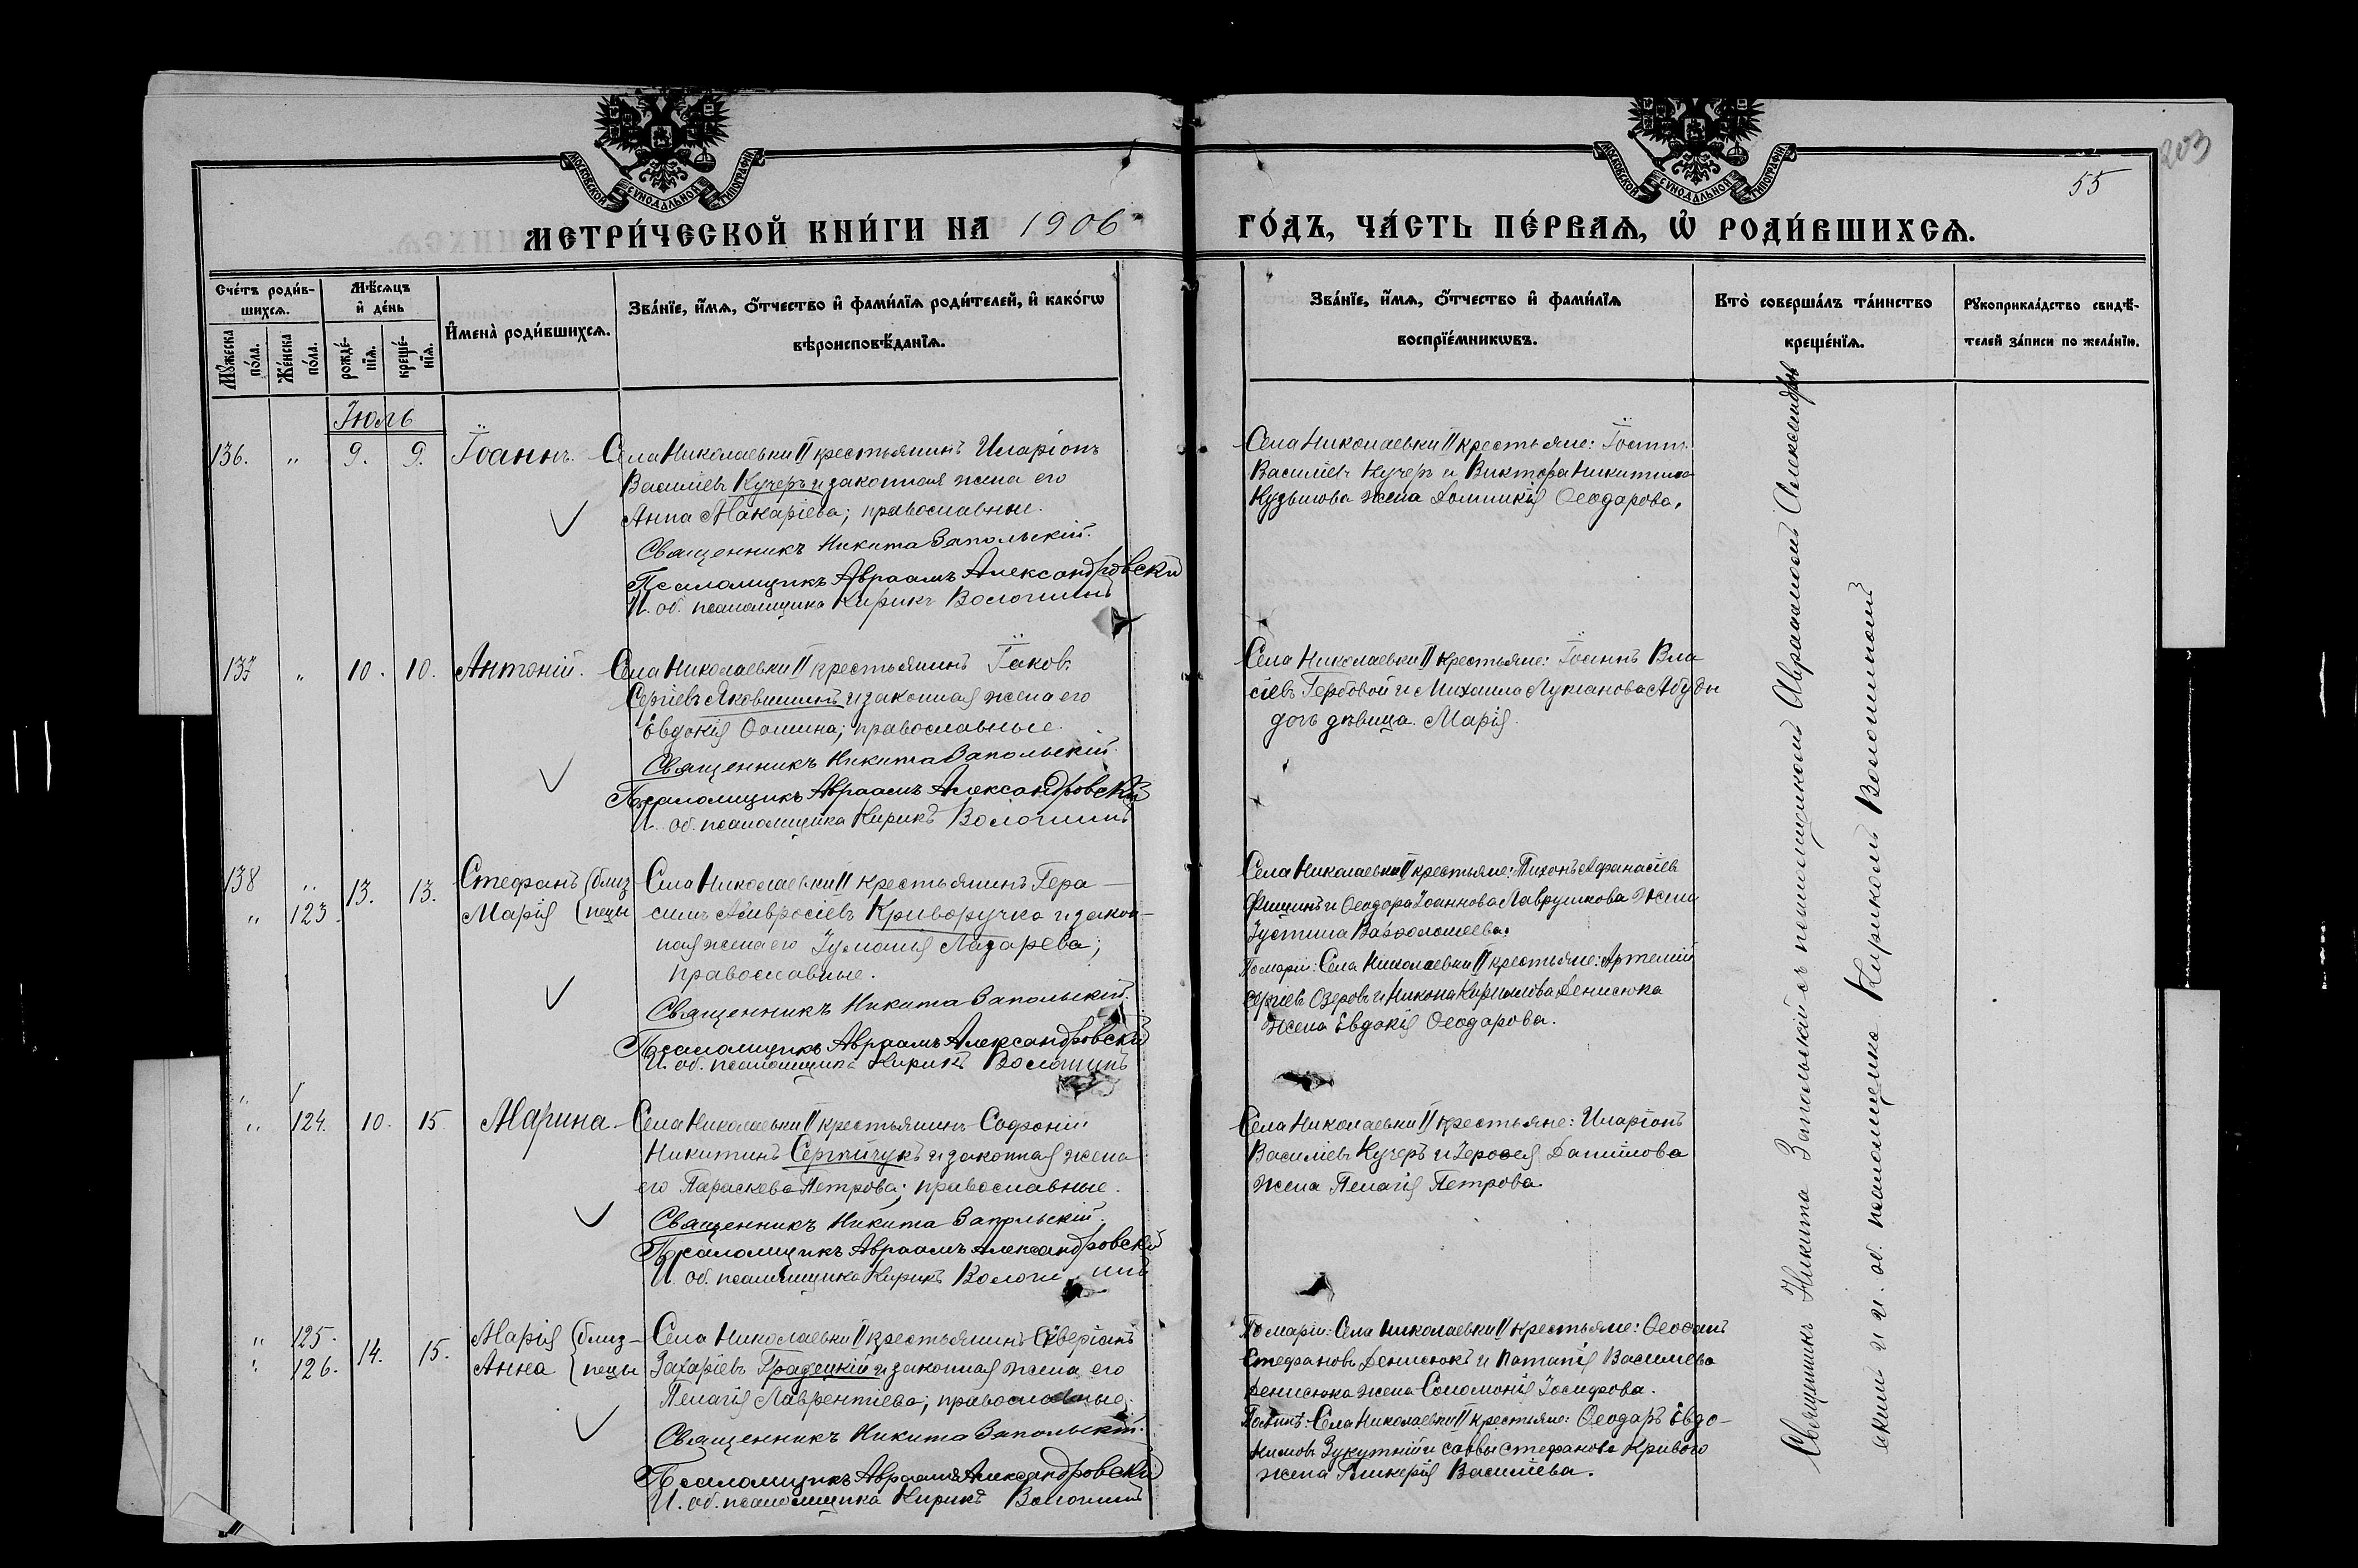 203
55
МОСКОВСКОЙ СѴНОДАЛЬНОЙ ТИПОГРАФІИ
МОСКОВСКОЙ СѴНОДАЛЬНОЙ ТИПОГРАФІИ
МЕТРИ́ЧЕСКОЙ КНИ́ГИ НА 1906
ГО́ДЪ, ЧА́СТЬ ПЕ́РВАѦ, Ѡ҆ РОДИ́ВШИХСѦ.
Сче́тъ роди́в-
шихсѧ.
Мꙋ́жеска по́ла.
Же́нска по́ла.
Мѣ́сѧцъ
и҆ де́нь
рожде́-
нїѧ.
креще́-
нїѧ.
И҆мена̀ роди́вшихсѧ.
Зва́нїе, и҆́мѧ, ѻ҆́тчество и҆ фами́лїѧ роди́телей, и҆ како́гѡ
вѣроисповѣ́данїѧ.
Зва́нїе, и҆́мѧ, ѻ҆́тчество и҆ фами́лїѧ
воспрїе́мникѡвъ.
Кто̀ соверша́лъ та́инство
креще́нїѧ.
Рꙋкоприкла́дство свидѣ́-
телей за́писи по жела́нїю.
Іюль
136. „ 9. 9. Іоаннъ.
Села Николаевки II крестьянинъ Иларіонъ
Василіевъ Кучеръ и законная жена его
Анна Макаріева; православные.
Священникъ Никита Запольскій.
Псаломщикъ Авраамъ Александровскій
И. об. псаломщика Кирикъ Волошинъ
Села Николаевки II крестьяне: Іоаннъ
Василіевъ Кучеръ и Виктора Никитина
Кузьмова жена Домникія Ѳеодорова.
137 „ 10. 10. Антоній.
Села Николаевки II крестьянинъ Іаковъ
Сергіевъ Яковишинъ и законная жена его
Евдокія Ѳомина; православные.
Священникъ Никита Запольскій.
Псаломщикъ Авраамъ Александровскій
И. об. псаломщика Кирикъ Волошинъ
Села Николаевки II крестьяне: Іоаннъ Вла
сіевъ Гербовой и Михаила Лукіанова
дочь дѣвица Марія.
138 „ 13. 13. Стефанъ (близ
„ 123. Марія (нецы
Села Николаевки II крестьянинъ Гера-
симъ Амвросіевъ Криворучко и закон-
ная жена его Іуліанія Лазарева;
православные.
Священникъ Никита Запольскій.
Псаломщикъ Авраамъ Александровскій
И. об. псаломщика Кирикъ Волошинъ
Села Николаевки II крестьяне: Тихонъ Аѳанасіевъ
и Ѳеодора Іоаннова Лаврушкова жена
Іустина Варѳоломеева.
По Маріи: Села Николаевки II крестьяне: Артемій
Сергіевъ Озеровъ и Никона Кириллова Денисюка
жена Евдокія Ѳеодорова.
„ 124. 10. 15. Марина.
Села Николаевки II крестьянинъ Софроній
Никитинъ Сергійчукъ и законная жена
его Параскева Петрова; православные.
Священникъ Никита Запольскій.
Псаломщикъ Авраамъ Александровскій
И. об. псаломщика Кирикъ Волошинъ
Села Николаевки II крестьяне: Иларіонъ
Василіевъ Кучеръ и Данилова
жена Пелагія Петрова.
„ 125. 14. 15. Марія (близ-
„ 126. Анна (нецы
Села Николаевки II крестьянинъ Аверіанъ
Захаріевъ Градецкій и законная жена его
Пелагія Лаврентіева; православные.
Священникъ Никита Запольскій.
Псаломщикъ Авраамъ Александровскій
И. об. псаломщика Кирикъ Волошинъ
По Маріи: Села Николаевки II крестьяне: Ѳеофанъ
Стефановъ Денисюкъ и Василіева
Денисюка жена Соломонія Іосифова.
По Аннѣ: Села Николаевки II крестьяне: Ѳеодоръ Евдо-
кимовъ и Саввы Стефанова Кривого
жена Гликерія Василіева.
Священникъ Никита Запольскій съ псаломщикомъ Авраамомъ Александров
скимъ и и. об. псаломщика Кирикомъ Волошинымъ